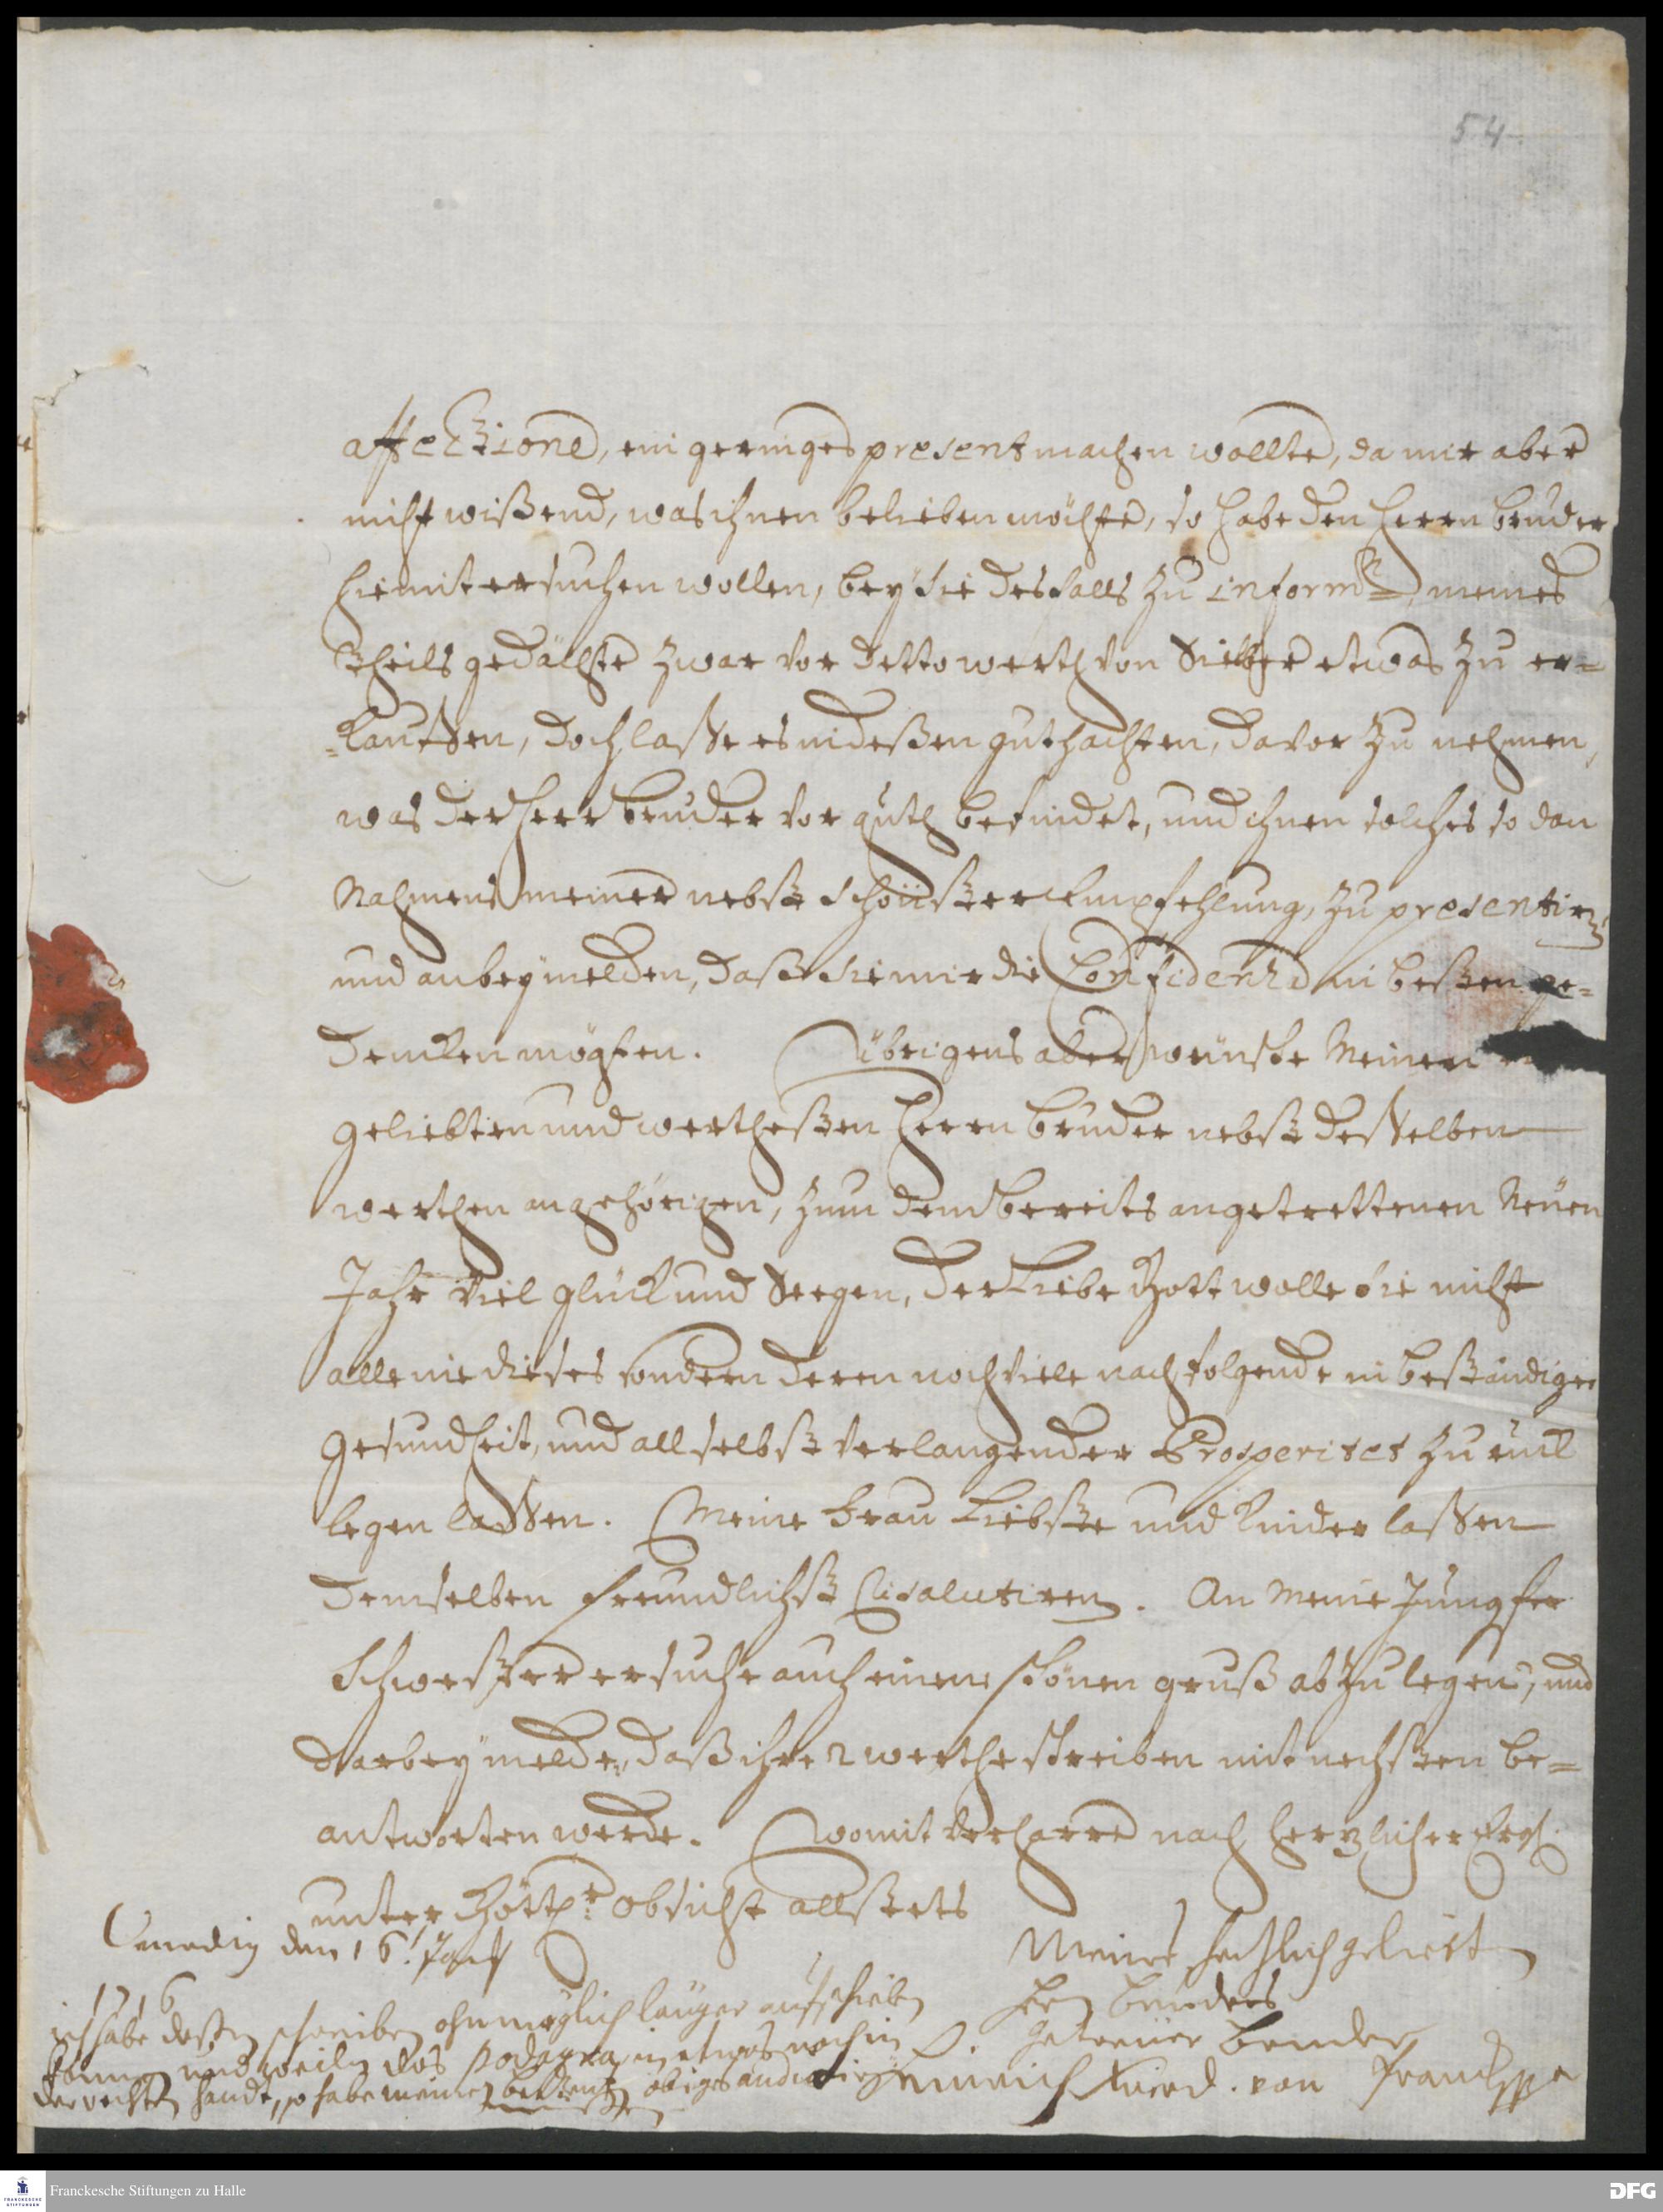 54
affectione, ein geringes present machen wollte, da mir aber
nicht wißend, was ihnen belieben möchte, so habe den Herrn bruder
hiemit ersuchen wollen, bey sie desfalls zu inform meines
theils gedächte zwar vor detto werth von Silber etwas zu er-
-kauffen, doch lasse es indeßen guthachten, davor zu nehmen,
was der Herr bruder vor guth befindet, und ihnen solches so dan
Nahmens meiner nebst schönster Empfehlung, zu presentir
und anbey melden, daß sie mir die Confidenza in besten ge-
dencken mögten. Übrigens aber wünsche Meinem
geliebten und werthesten Herrn bruder nebst desselben
werthen angehörigen, zum dem bereits angetrettenen Neuen
Jahr viel glück und Seegen, der liebe Gott wolle sie nicht
allein dieses sondern deren noch viele nachfolgende in beständiger
gesundheit, und all selbst verlangender Prosperitet zu rück
legen lassen. Meine Frau Liebste und Kinder lassen
demselben freundlichst salutiren. An Meine Jungfer
Schwester ersuche auch einen schönen gruß abzulegen, und
darbey melde, daß ihre 2 werthe schreiben mit nechsten be-
antworten werde. Womit verharre nach hertzlicher
unter Göttl: obsicht allstets
Venedig den 16.
1716
Meines hertzlich geliebten
Herrn bruders
getreuer bruder
Heinrich Frierd. von Franck
ich habe dessen schreiben ohnmöglich länger aufschieben
können und weiln das podagra in etwas noch in
der rechten Hande, so habe meinen obiges
Franckesche Stiftungen zu Halle
FRANCKESCHE STIFTUNGEN
DFG